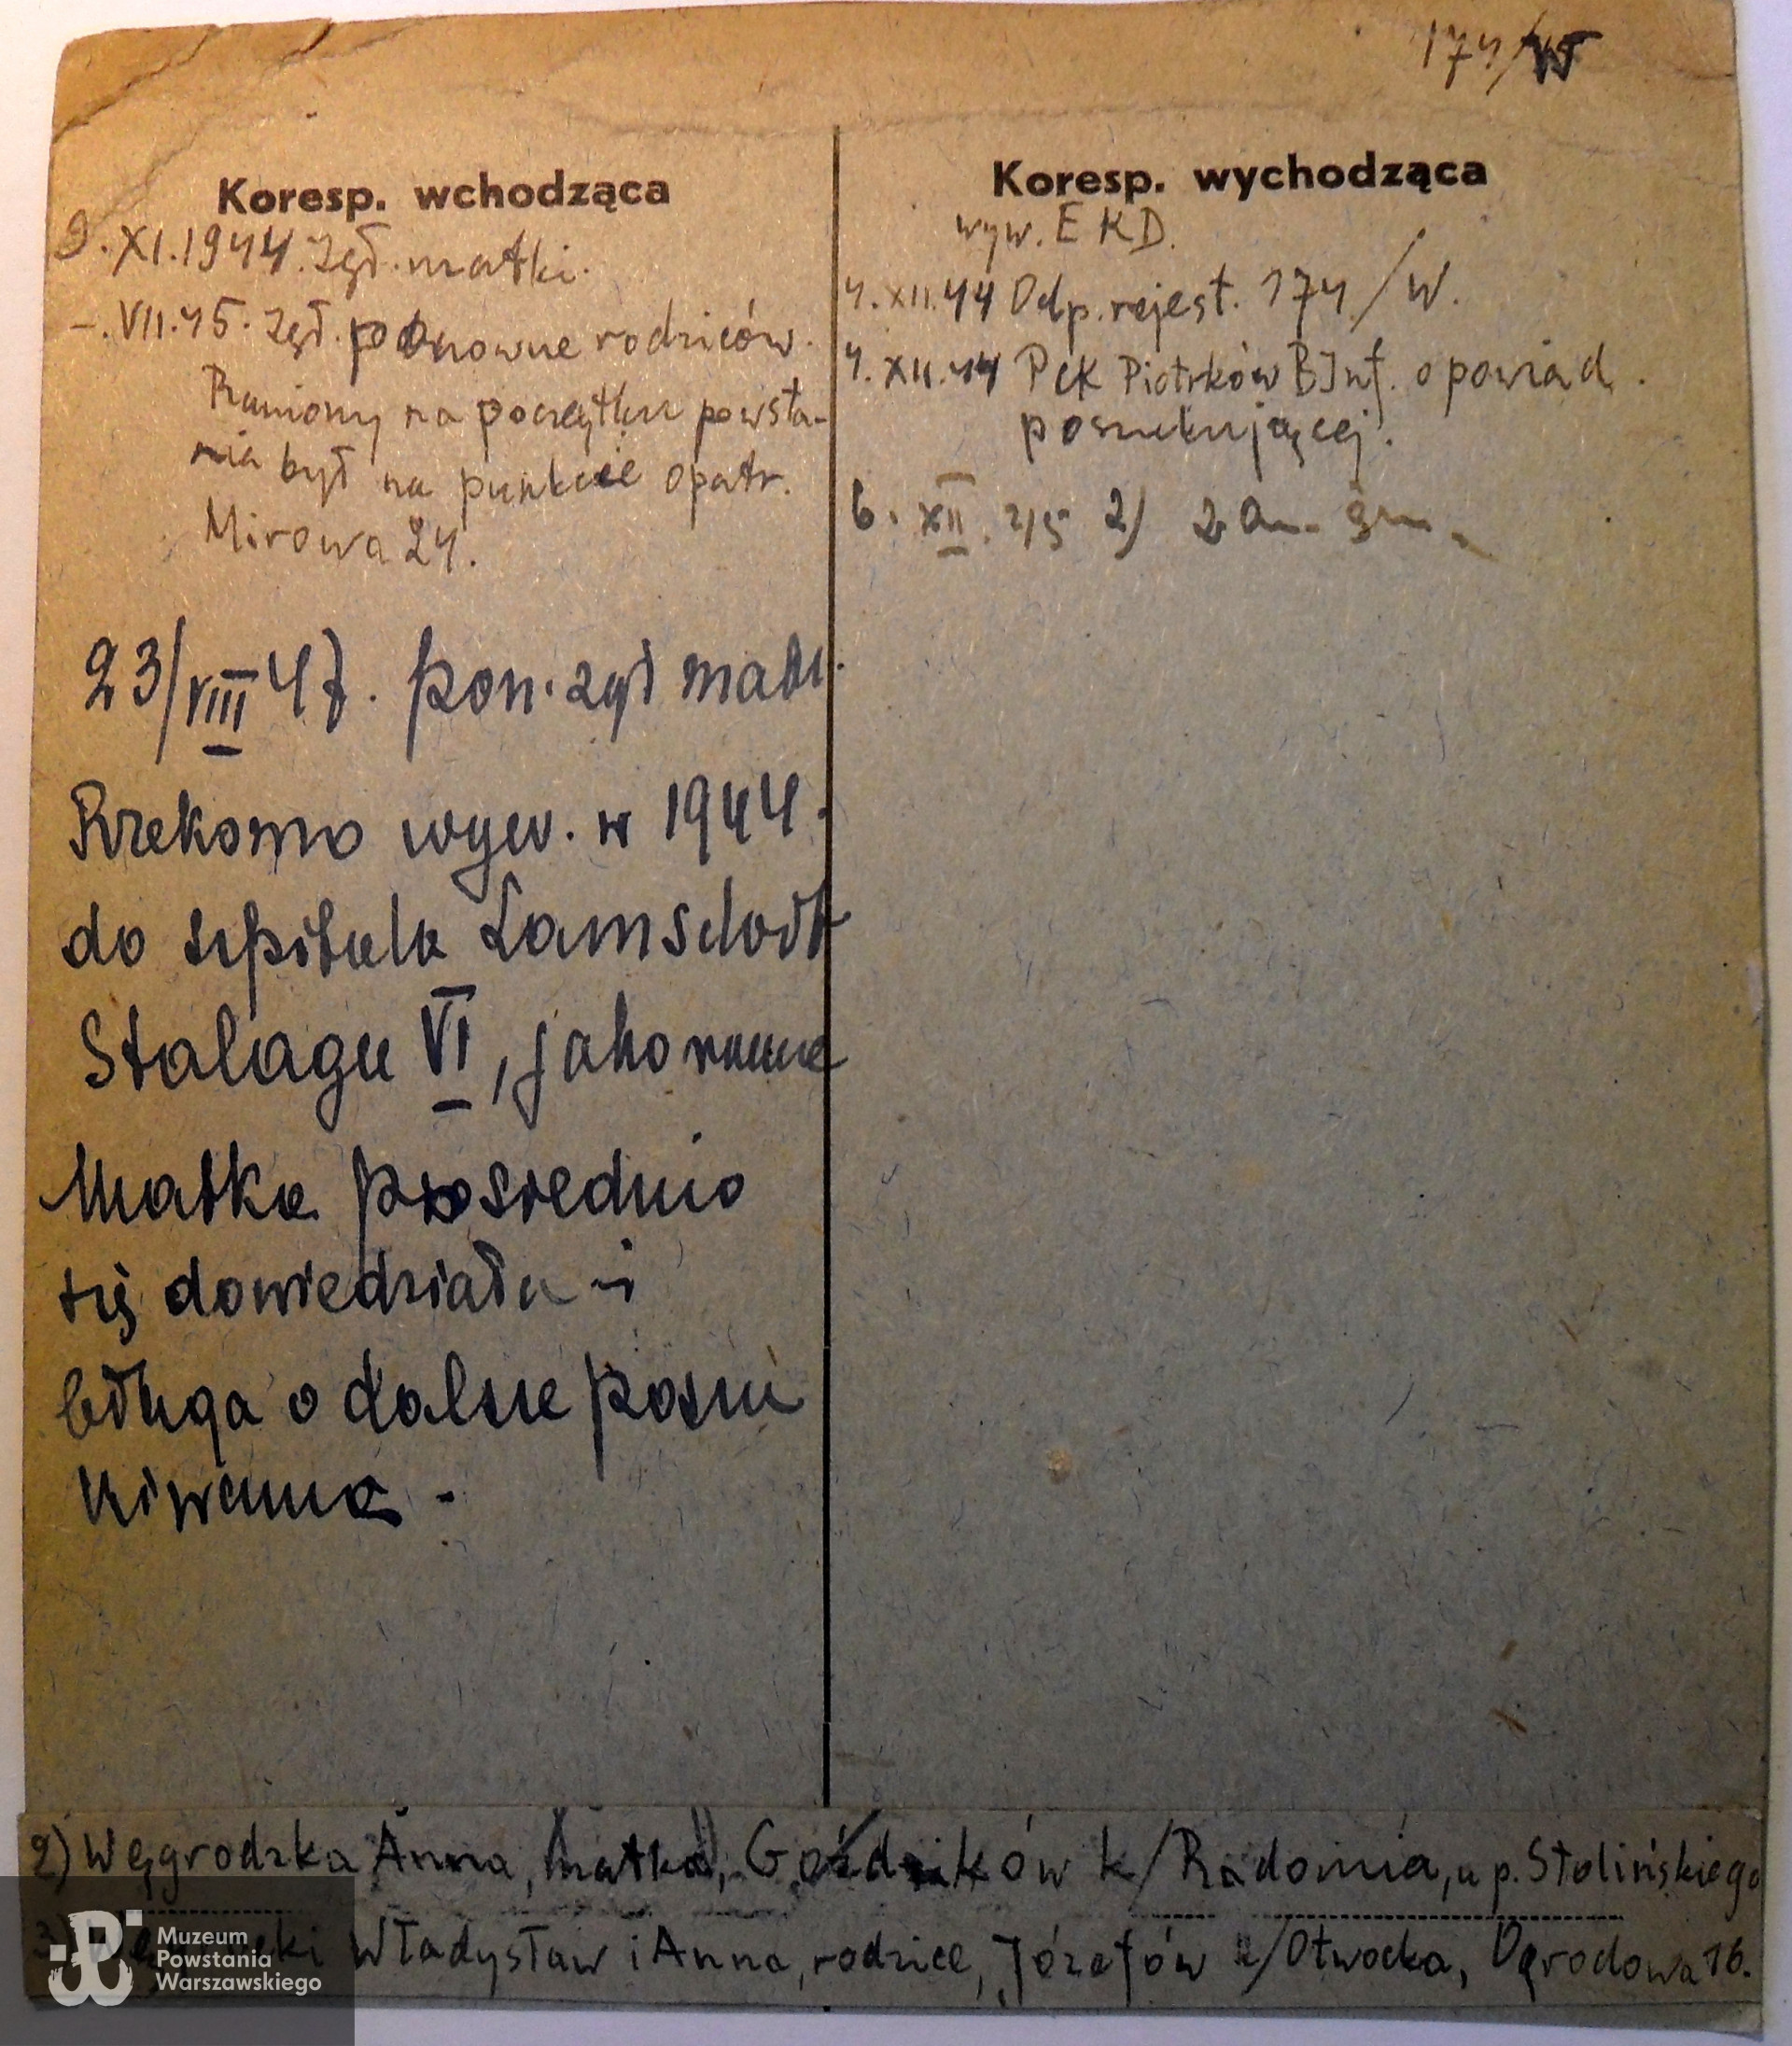 174/W
Koresp. wchodząca
9.XI.1944.Zgł.matki.
-.VII.45.Zgł.ponowne rodziców.
Raniony na początku powsta-
nia był na punkcie opatr.
Mirowa 24.
23/VIII 47. pon. zgł matki.
Rzekomo wyw. w 1944.
do szpitala Lamsdorf
Stalagu VI, jako
Matka pośrednio
się dowiedziała - i
błaga o dalsze poszu
kiwania -
Koresp. wychodząca
wyw. E K D.
4.XII.44 Odp.rejest. 174/W.
4.XII.44 PCK Piotrków BInf. o powiad.
poszukującej.
6. XII. 45 2)
2) Węgrodzka Anna, matka, Goździków k/Radomia, u p. Stolińskiego
Władysław i Anna, rodzice, Józefów k/Otwocka, Ogrodowa 16.
Muzeum
Powstania
Warszawskiego